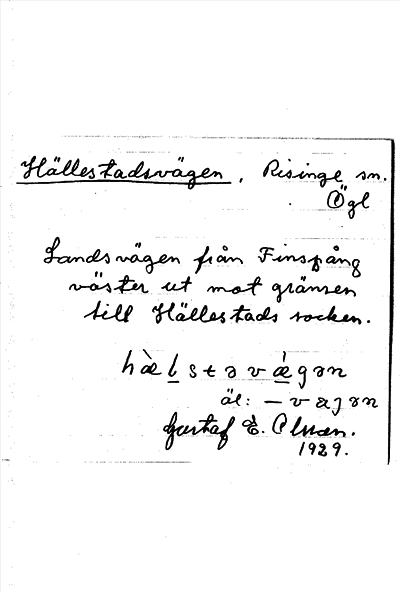 Hällestadsvägen, Risinge sn.
Ögl
Landsvägen från Finspång
väster ut mot gränsen
till Hällestads socken.
hæ̀lstəvǽgən
äl: – væjən
Gustaf E. Olsson.
1929.